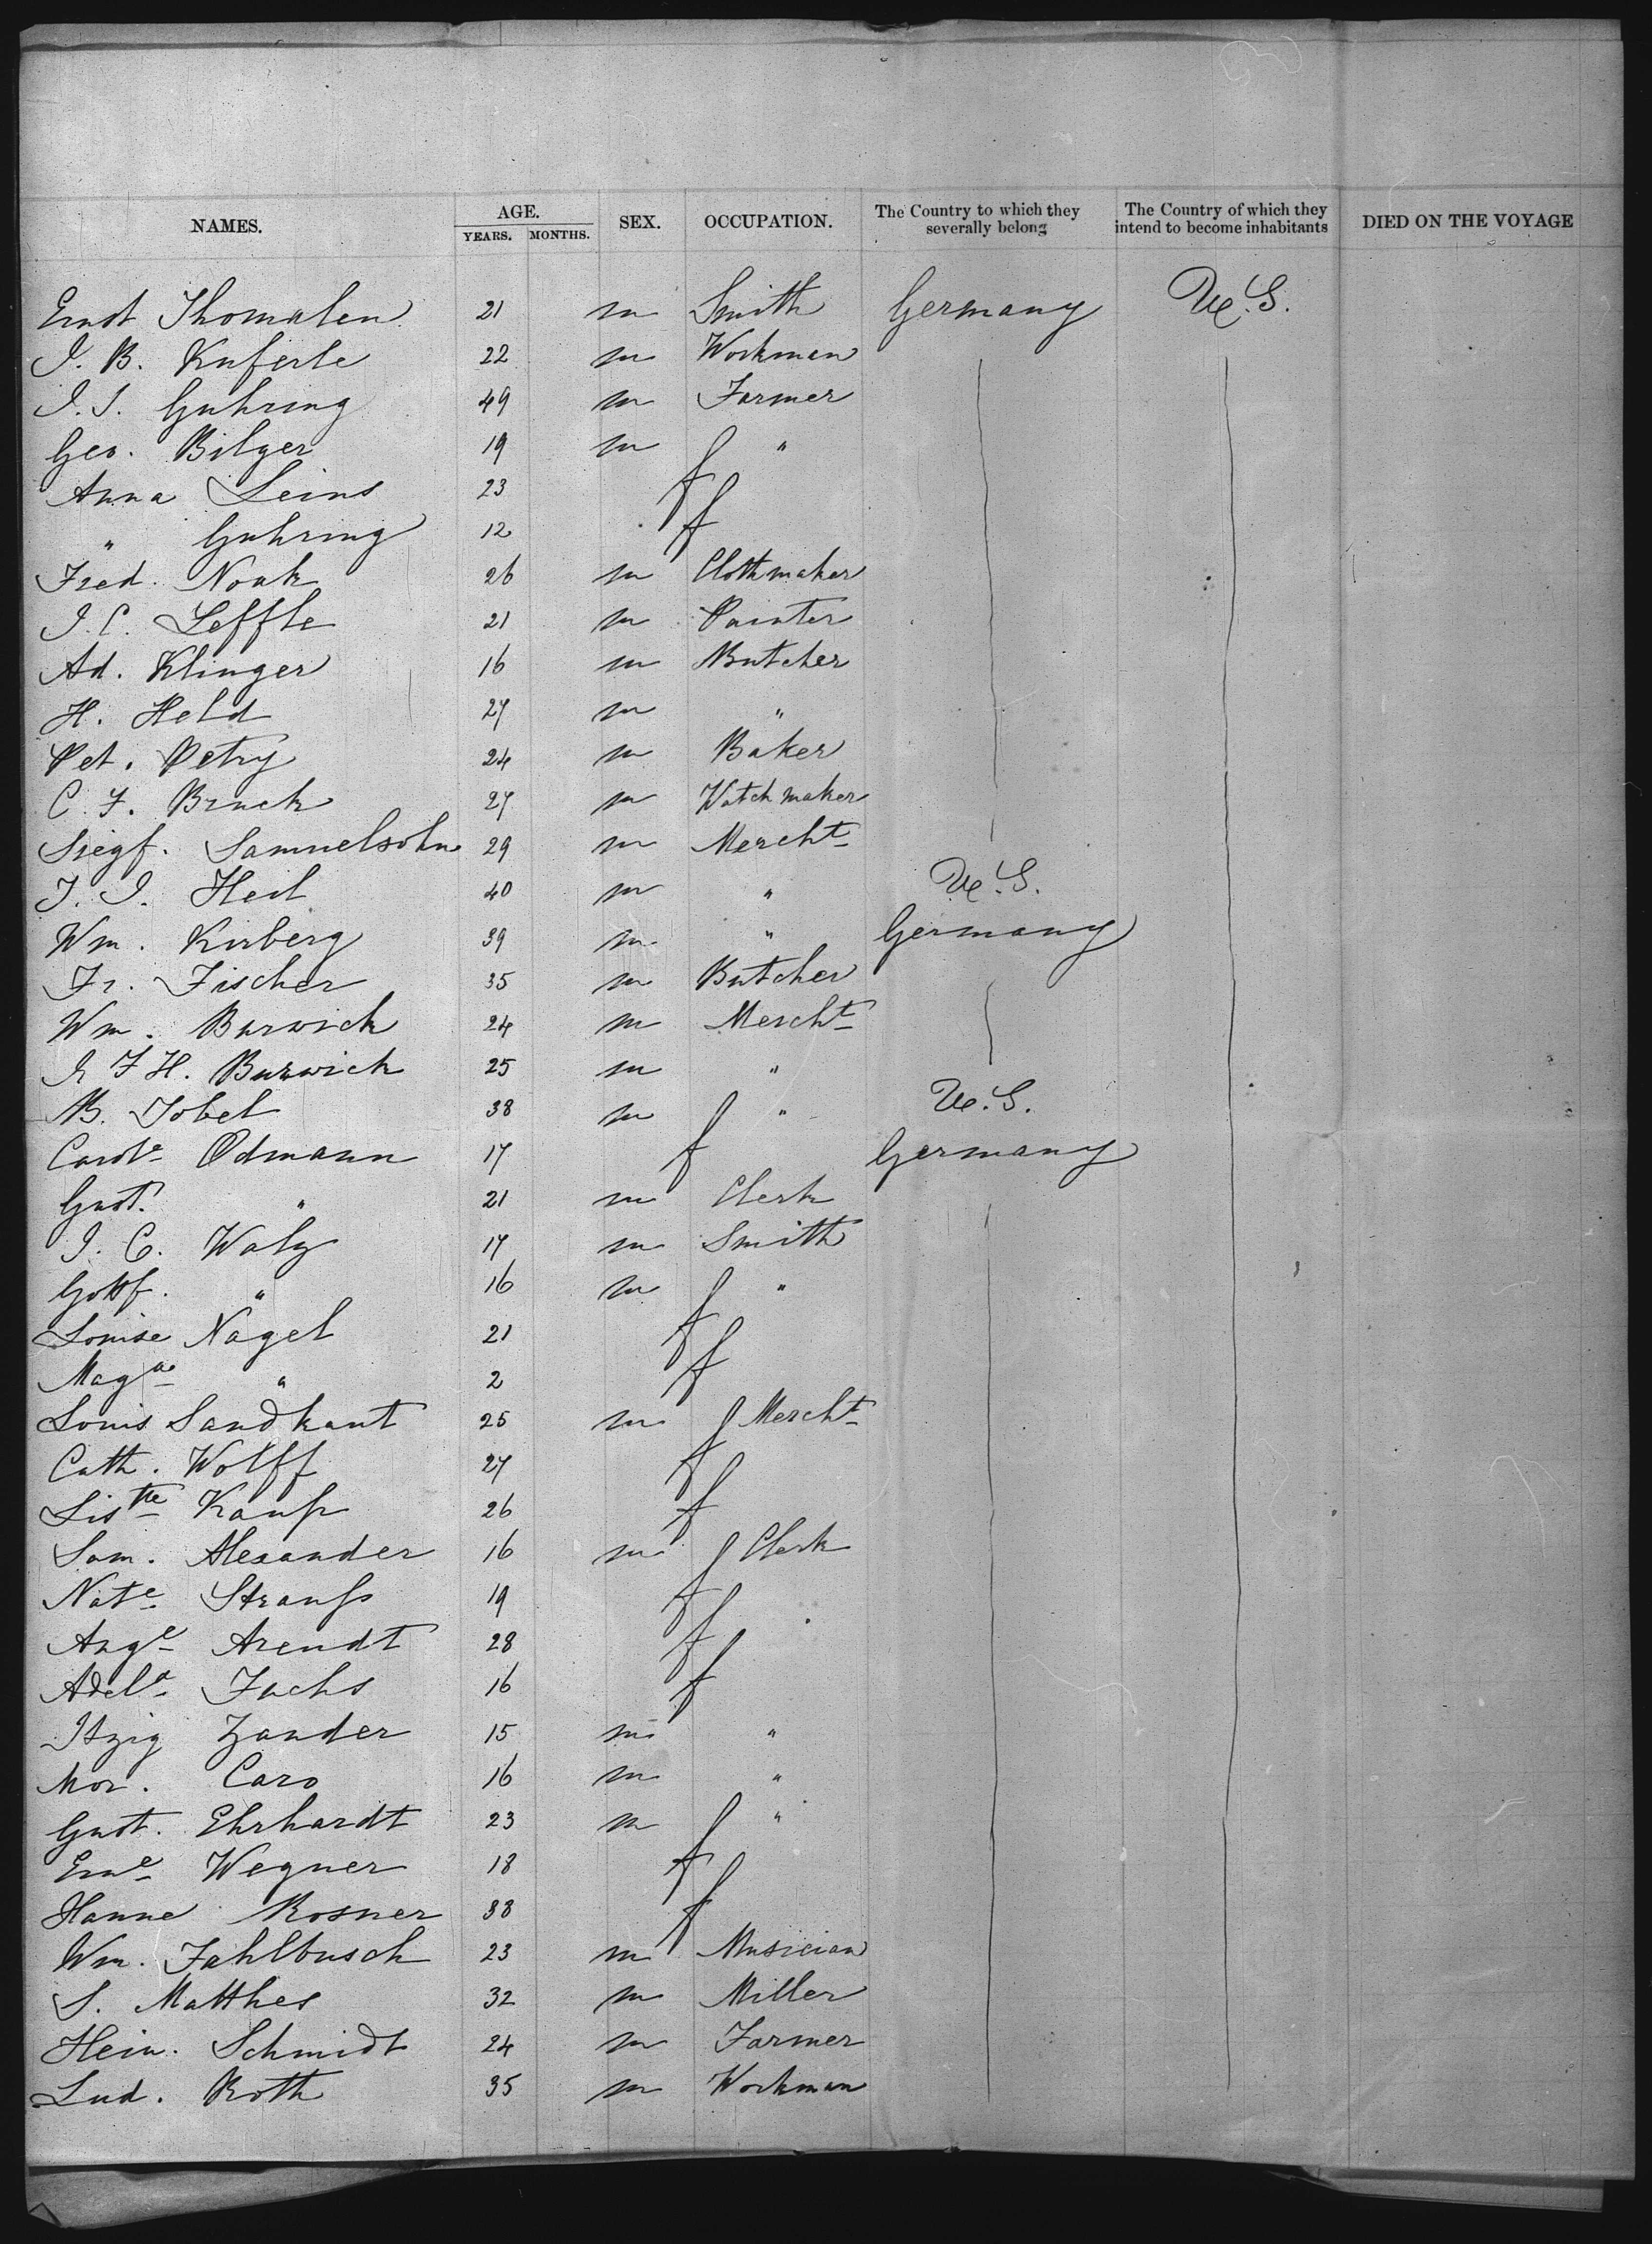 NAMES. AGE. SEX. OCCUPATION. The Country to which they severally belong The Country of which they intend to become inhabitants DIED ON THE VOYAGE
YEARS. MONTHS.
Ernst Thomalen 21 m Smith Germany U.S.
J. B. Kuferle 22 m Workman
J. J. Guhring 49 m Farmer
Geo. Bilger 19 m "
Anna Leins 23 f
" Guhring 12 f
Fred. Noak 26 m Clothmaker
J. C. Leffle 21 m Painter
Ad. Klinger 16 m Butcher
H. Held 27 m "
Pet. Petry 24 m Baker
C. F. Bruck 27 m Watchmaker
Siegf. Samuelsohn 29 m Mercht
J. J. Heil 40 m " U.S.
Wm. Kirberg 39 m " Germany
Fr. Fischer 35 m Butcher
Wm. Burwick 24 m Mercht
J F H. Burwick 25 m "
B. Tobel 38 m " U.S.
Carole Odmann 17 f Germany
Gust. " 21 m Clerk
J. C. Walz 17 m Smith
Gottf. " 16 m "
Louise Nagel 21 f
Maga " 2 f
Louis Sandkant 25 m Mercht
Cath. Wolff 27 f
Listte Kauf 26 f
Sam. Alexander 16 m Clerk
Nate Strauss 19 f
Auge Arendt 28 f
Adela Fuchs 16 f
Itzig Zander 15 m "
Mor. Caro 16 m "
Gust. Ehrhardt 23 m "
Erne Wegner 18 f
Hanne Rosner 38 f
Wm. Fahlbusch 23 m Musician
S. Matthes 32 m Miller
Hein. Schmidt 24 m Farmer
Lud. Roth 35 m Workman